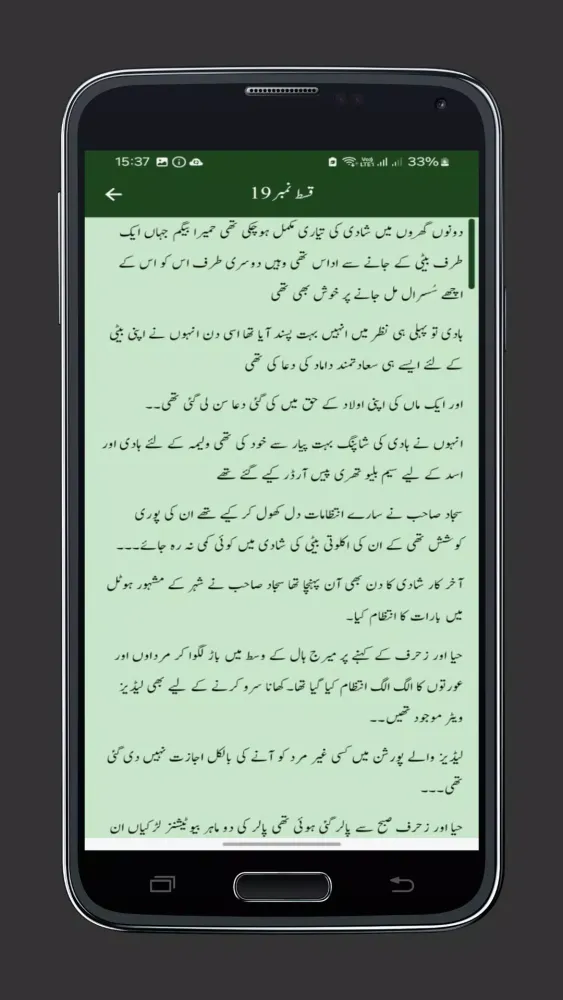 15:37
33%
قسط نمبر 19
دونوں گھروں میں شادی کی تیاری مکمل ہوچکی تھی حمیرا بیگم جہاں ایک
طرف بیٹی کے جانے سے اداس تھی وہیں دوسری طرف اس کو اس کے
اچھے سُسرال مل جانے پر خوش بھی تھی
ہادی تو پہلی ہی نظر میں انہیں بہت پسند آیا تھا اسی دن انہوں نے اپنی بیٹی
کے لئے ایسے ہی سعادتمند داماد کی دعا کی تھی
اور ایک ماں کی اپنی اولاد کے حق میں کی گئی دعا سن لی گئی تھی۔۔
انہوں نے ہادی کی شاپنگ بہت پیار سے خود کی تھی ولیمہ کے لئے ہادی اور
اسد کے لیے سیم بلیو تھری پیس آرڈر کیے گئے تھے
سجاد صاحب نے سارے انتظامات دل کھول کر کیے تھے ان کی پوری
کوشش تھی کے ان کی اکلوتی بیٹی کی شادی میں کوئی کمی نہ رہ جائے۔۔۔
آخر کار شادی کا دن بھی آن پہنچا تھا سجاد صاحب نے شہر کے مشہور ہوٹل
میں بارات کا انتظام کیا۔
حیا اور زحرف کے کہنے پر میرج ہال کے وسط میں باڑ لگوا کر مرداوں اور
عورتوں کا الگ الگ انتظام کیا گیا تھا۔کھانا سرو کرنے کے لیے بھی لیڈیز
ویٹر موجود تھیں۔۔
لیڈیز والے پورشن میں کسی غیر مرد کو آنے کی بالکل اجازت نہیں دی گئی
تھی۔۔۔
حیا اور زحرف صبح سے پالر گئی ہوئی تھی پالر کی دو ماہر بیوٹیشنز لڑکیاں ان